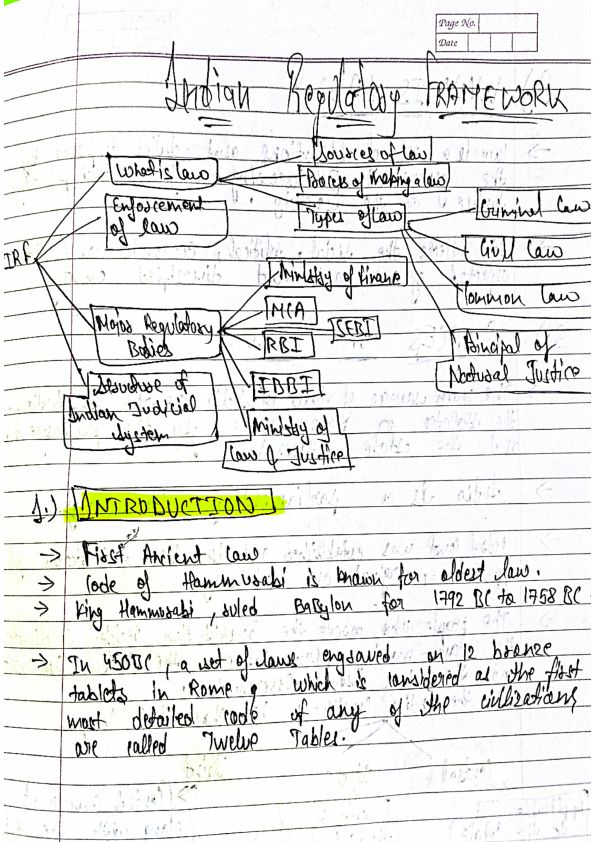 Page No.
Date
Indian Regulatory FRAMEWORK
IRF
What is law
Sources of law
Process of making a law
Types of law
Criminal law
Civil law
Common law
Principal of
Natural Justice
Enforcement
of law
Major Regulatory
Bodies
Ministry of finance
MCA
SEBI
RBI
IDBI
Ministry of
law & Justice
Structure of
Indian Judicial
System
1.) INTRODUCTION
→ First Ancient law
→ Code of Hammurabi is known for oldest law.
→ King Hammurabi, ruled BaBylon for 1792 BC to 1758 BC
→ In 450BC, a set of laws engraved on 12 bronze
tablets in Rome, which is considered as the first
most detailed code of any of the civilizations,
are called Twelve Tables.